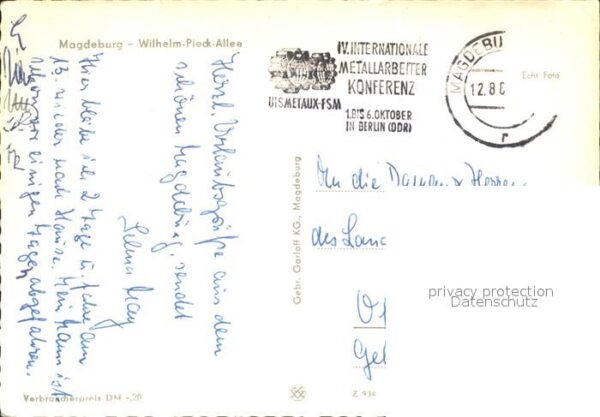 Magdeburg – Wilhelm-Pieck-Allee
IV. INTERNATIONALE
METALLARBEITER
KONFERENZ
UISMETAUX-FSM
1. BIS 6. OKTOBER
IN BERLIN (DDR)
MAGDEBU
12.8.6
r
Echt Foto
Herzl. Urlaubsgrüße aus dem
schönen Magdeburg, sendet
Selma May
Hier bleibe ich 2 Tage u. fahre am
13. wieder nach Hause. Mein Mann ist
schon vor einigen Tagen abgefahren.
An die Damen u. Herren
des Land
O
Ge
Gebr. Garloff KG., Magdeburg
Verbraucherpreis DM -,20
Z 934
privacy protection
Datenschutz